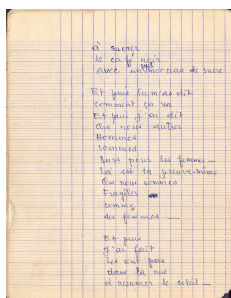 à sucrer
le café noir
avec un morceau de sucre
Et puis tu m'as dit
comment ça va
Et puis j'ai dit
Que nous autres
Hommes
sommes
Durs pour les femmes _
Là est la preuve même
Que nous sommes
Fragiles
comme
des femmes _
Et puis
J'ai fait
les cent pas
dans la rue
à rejoindre le soleil _